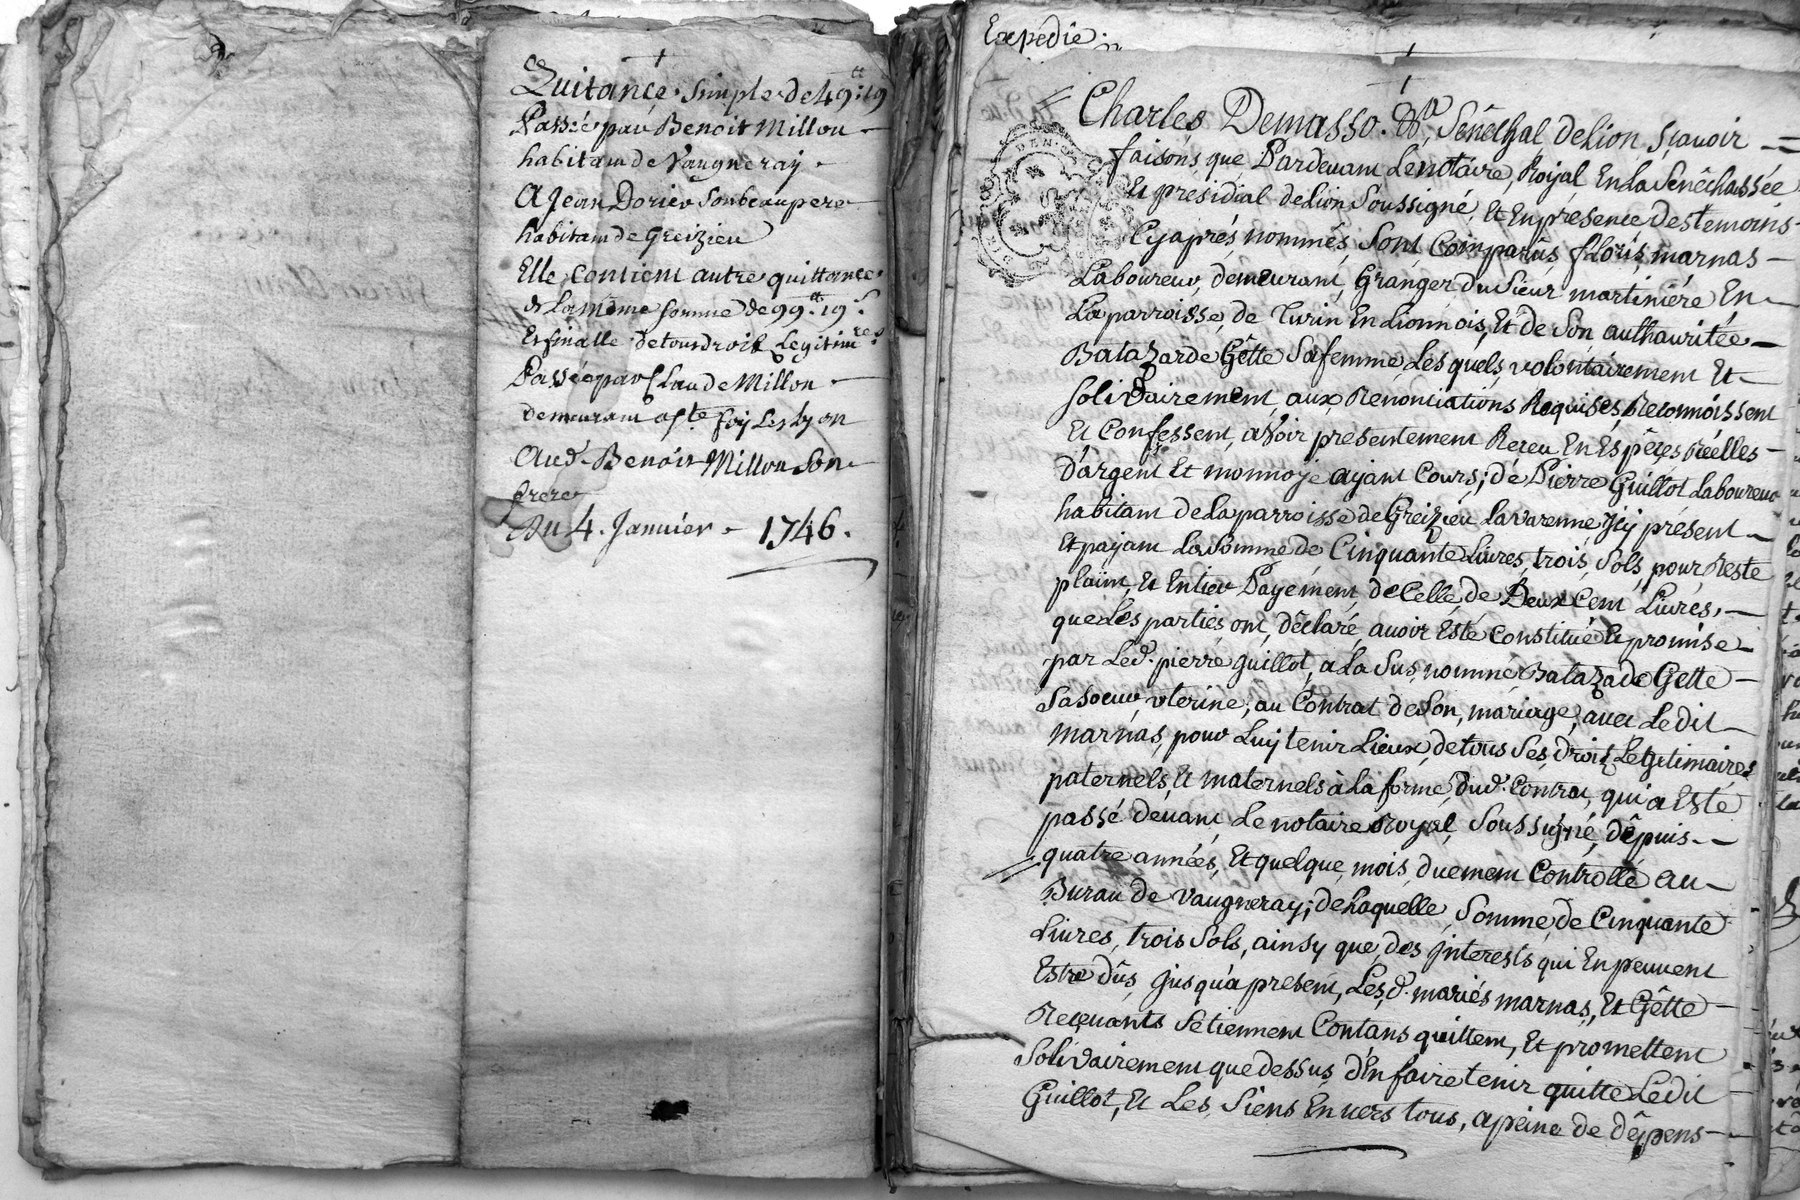 Quitance simple de 49 ᵗᵗ: 19
Passée par Benoit Millon
habitant de Vaugneray
A Jean Dorier Son beaupere
habitant de Greizieu
Elle contient autre quittance
de La même somme de 99 ᵗᵗ: 19 s.
Et finalle de tous droits Legitimres
Passée par Claude Millon
demeurant a Ste foy Les Lyon
Aud. Benoit Millon Son
frere
Du 4. Janvier 1746.
Expedié.
Charles Demasso. &ra Sénéchal de Lion sçavoir
faisons que Pardevant Le notaire, Royal En La Senêchassée
Et présidial de Lion Soussigné, Et En présence des temoins
Cy après nommés, Sont Comparûs floris marnas
Laboureur, demeurant, Granger du Sieur martiniére En
La parroisse de Turin En Lionnois, Et de Son authauritée
Batazarde Gêtte Sa femme Les quels volontairement Et
Solidairement aux Renonciations Requises Reconnoissent
Et Confessent, avoir presentement Receu En Espêces Réelles
D'argent Et monnoye ayant Cours; de Pierre Guillot Laboureur
habitant de La parroisse de Greizieu Lavarenne Jcy présent
Et payant La Somme de Cinquante Livres, trois, Sols, pour Reste
plaint, Et Entier Payement de Celle de Deux Cent Livres,
que Les parties ont, déclaré avoir Esté Constitué Et promise
par Led. pierre Guillot, a La Sus nommé Batazade Gette
Sa soeur, vterine, au Contrat de Son, mariage, avec Le dit
Marnas, pour Luy tenir Lieux, de tous Ses, droits Legitimaires
paternels, Et maternels à La forme, dud. Contrat, qui a Esté
passé devant Le notaire Royal, Soussigné, dêpuis
quatre années, Et quelque, mois, duement Controllé au
Bureau de Vaugneray; de Laquelle, Somme, de Cinquante
Livres, trois Sols, ainsy que, des Jnterests qui En peuvent
Estre dûs Jusqu'a present, Les d. mariés marnas, Et Gêtte
Reçevants Se tiennent Contans quittent, Et promettent
Solidairement que dessus d'En faire tenir quitte Le dit
Guillot, Et Les Siens Envers tous, a peine de dêpens